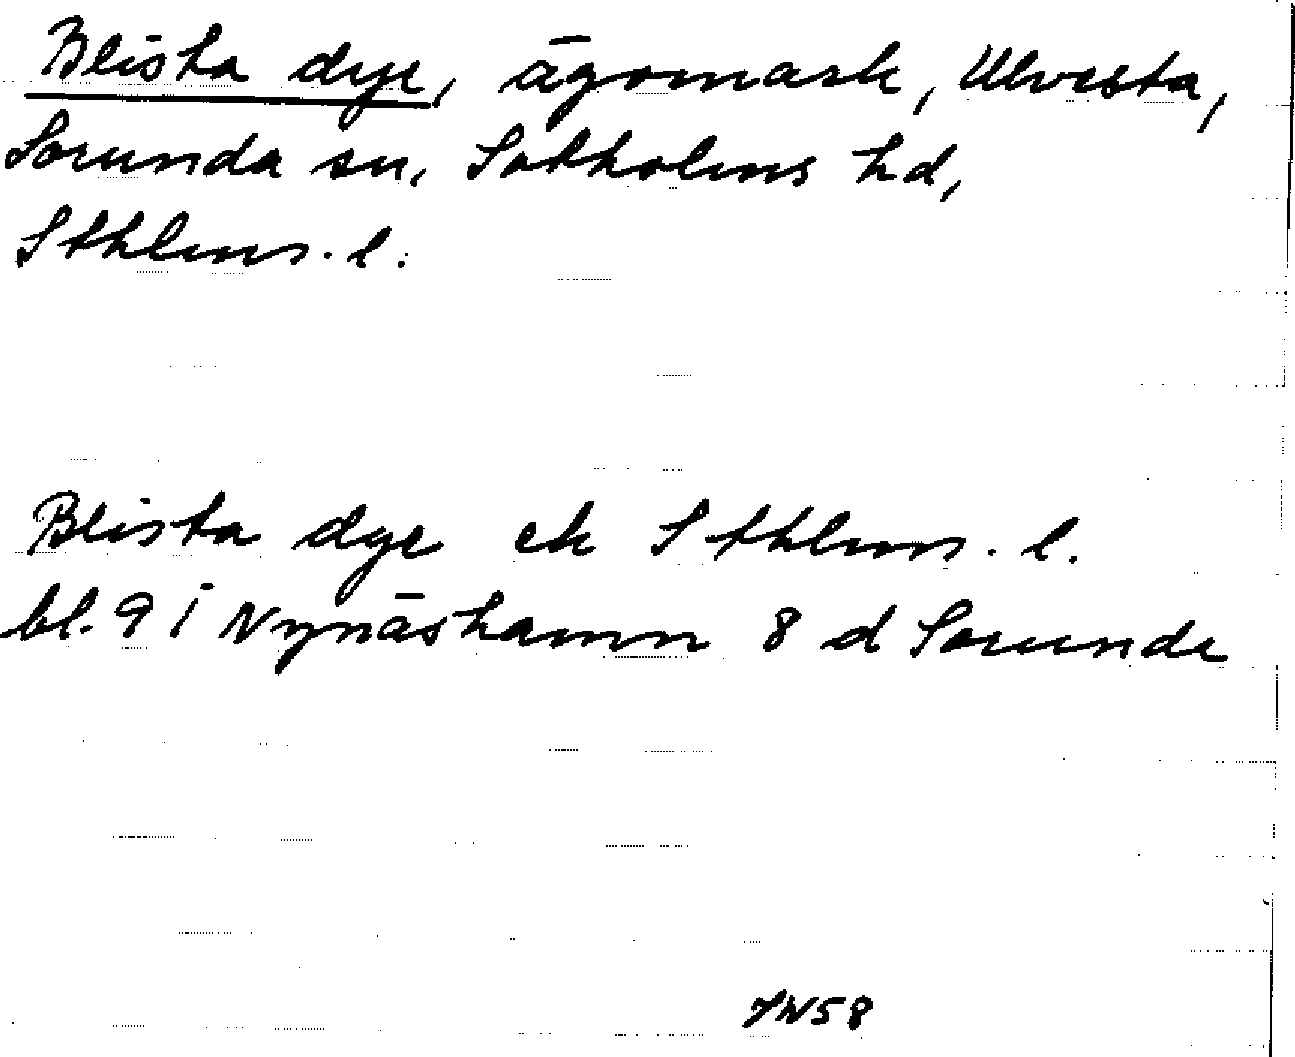 Blista dye, ägomark, Ulvesta,
Sorunda sn, Sotholms hd,
Sthlms. l.
Blista dye ek Sthlms. l.
bl. 9 i Nynäshamn 8 d Sorunda
58